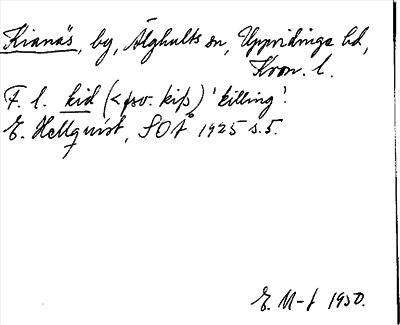 Kianäs, by, Älghults sn, Uppvidinge hd,
Kron. l.
F. l. kid (< fsv. kiþ) 'killing'.
E. Hellquist, SOÅ 1925 s. 5.
E. M-f 1950.